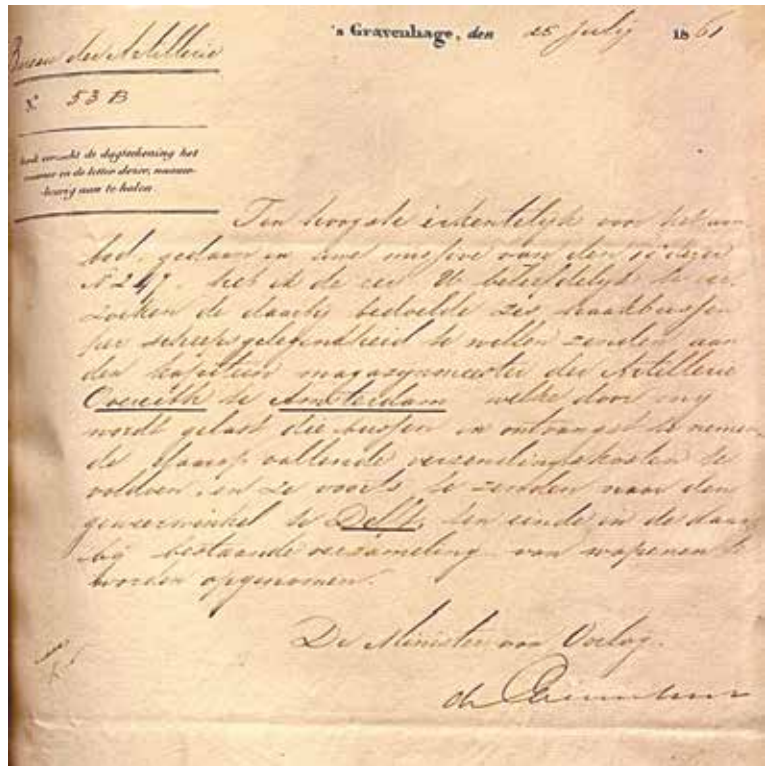 's Gravenhage, den 25 July 1861
Bureau der Artillerie
N.º 53 B
verzoekt de dagteekening het
nummer en de letter dezer, naauw-
keurig aan te halen.
Ten hoogste erkentelijk voor het aan
bod, gedaan in uwe missive van den
N 247, heb ik de eer U beleefdelijk te ver
zoeken de daarbij bedoelde zes haakbussen
per scheepsgelegendheid te willen zenden aan
den kapitein magazynmeester der Artillerie
te Amsterdam welke door my
wordt gelast die bussen in ontvangst te nemen,
de daarop vallende verzendingskosten te
voldoen, en ze voorts te zenden naar den
geweerwinkel te Delft, ten einde in de daar
bij bestaande verzameling van wapenen te
worden opgenomen.
De Minister van Oorlog.